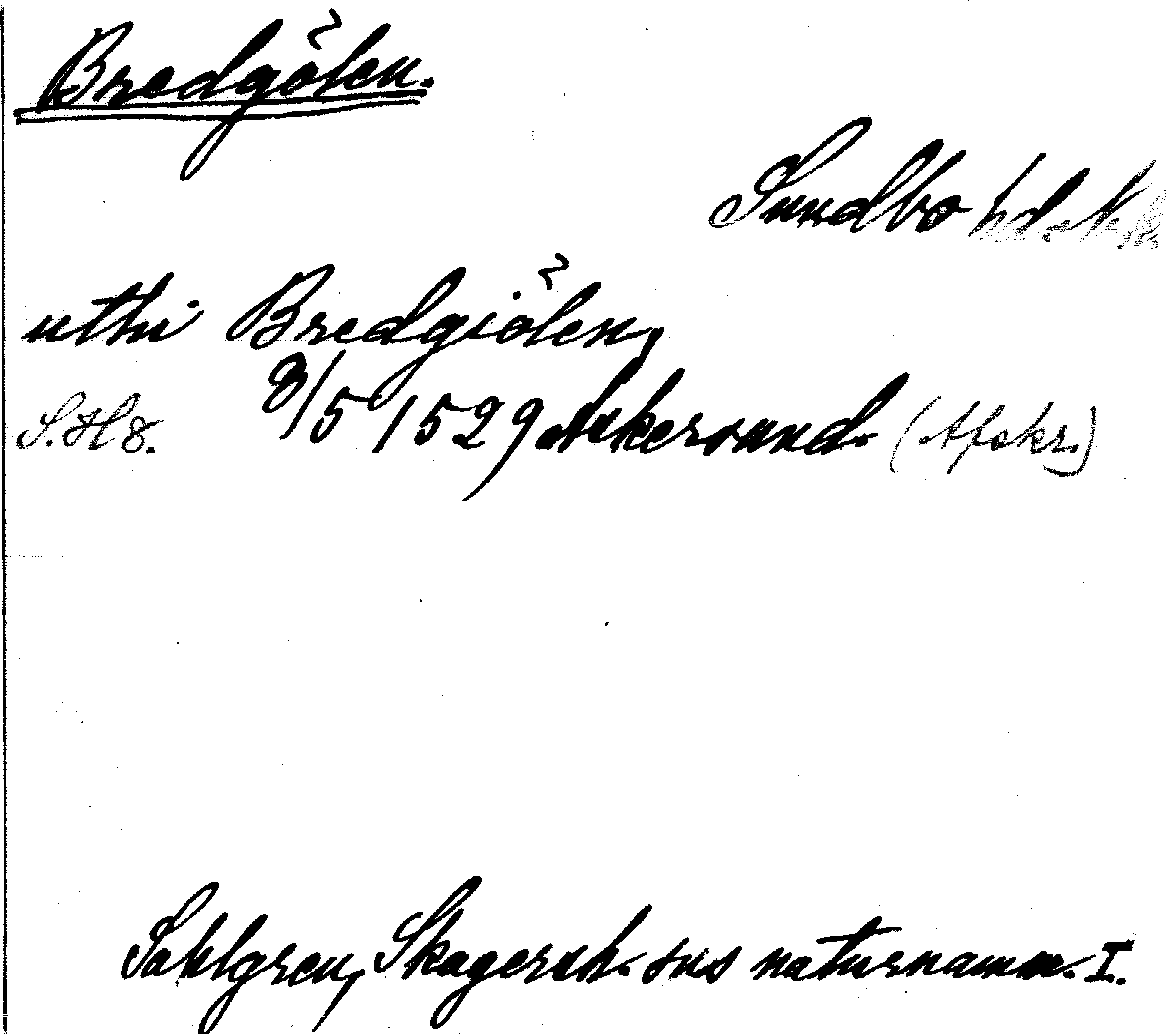 Bredgölen.
Sundbo hd. N.
uthi Bredgiölen,
S.H 8. 8/5 1529 Askersund. (Afskr.)
Sahlgren, Skagersh. sns naturnamn. I.